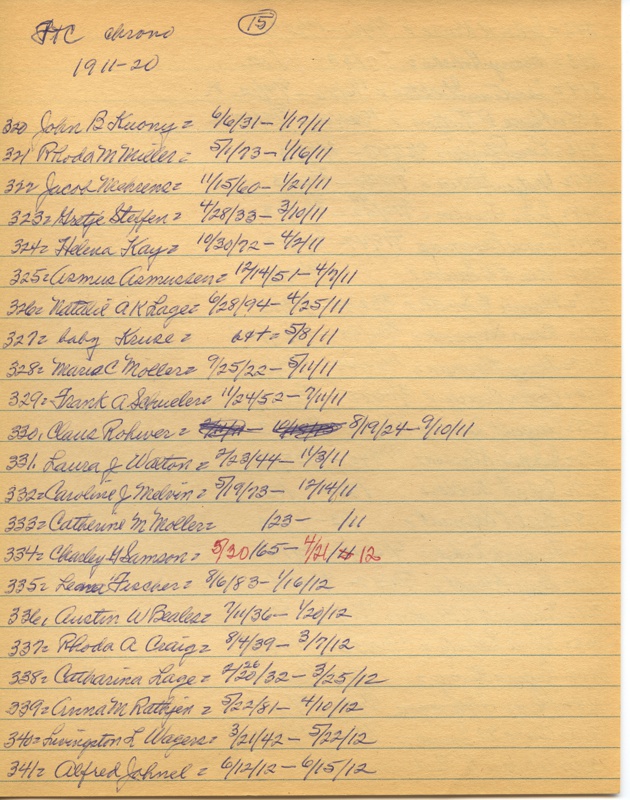 FtC Chrono 15
1911-20
320 John B Kuony = 6/6/31 - 1/17/11
321 Rhoda M Miller = 5/1/73 - 1/16/11
322 Jacob Mehrens = 11/15/60 - 1/21/11
323 = Gretje Steffen = 4/28/33 - 3/10/11
324 = Helena Kay = 10/30/72 - 4/2/11
325 = Asmus Asmussen = 12/14/51 - 4/7/11
326 = Natalie A K Lage = 6/28/94 - 4/25/11
327 = baby Kruse = b&+ = 5/8/11
328 = Maria C Moller = 9/25/22 - 5/11/11
329 = Frank A Schueler = 11/24/52 - 7/11/11
330, Claus Rohwer = 8/19/24 - 9/10/11
331, Laura J Watton = 2/23/44 - 11/3/11
332 = Caroline J Melvin = 5/19/73 - 12/14/11
333 = Catherine M Moller = /23 - /11
334 = Charley H Samson = 5/20/65 - 4/21/12
335 = Leana Fischer = 8/6/83 - 1/16/12
336, Austin W Beales = 7/11/36 - 1/20/12
337 = Rhoda A Craig = 8/4/39 - 3/7/12
338 = Catharina Lage = 2/26/32 - 3/25/12
339 = Anna M Rathjen = 5/22/81 - 4/10/12
340 = Livingston L Wagers = 3/21/42 - 5/22/12
341 = Alfred Johnel = 6/12/12 - 6/15/12